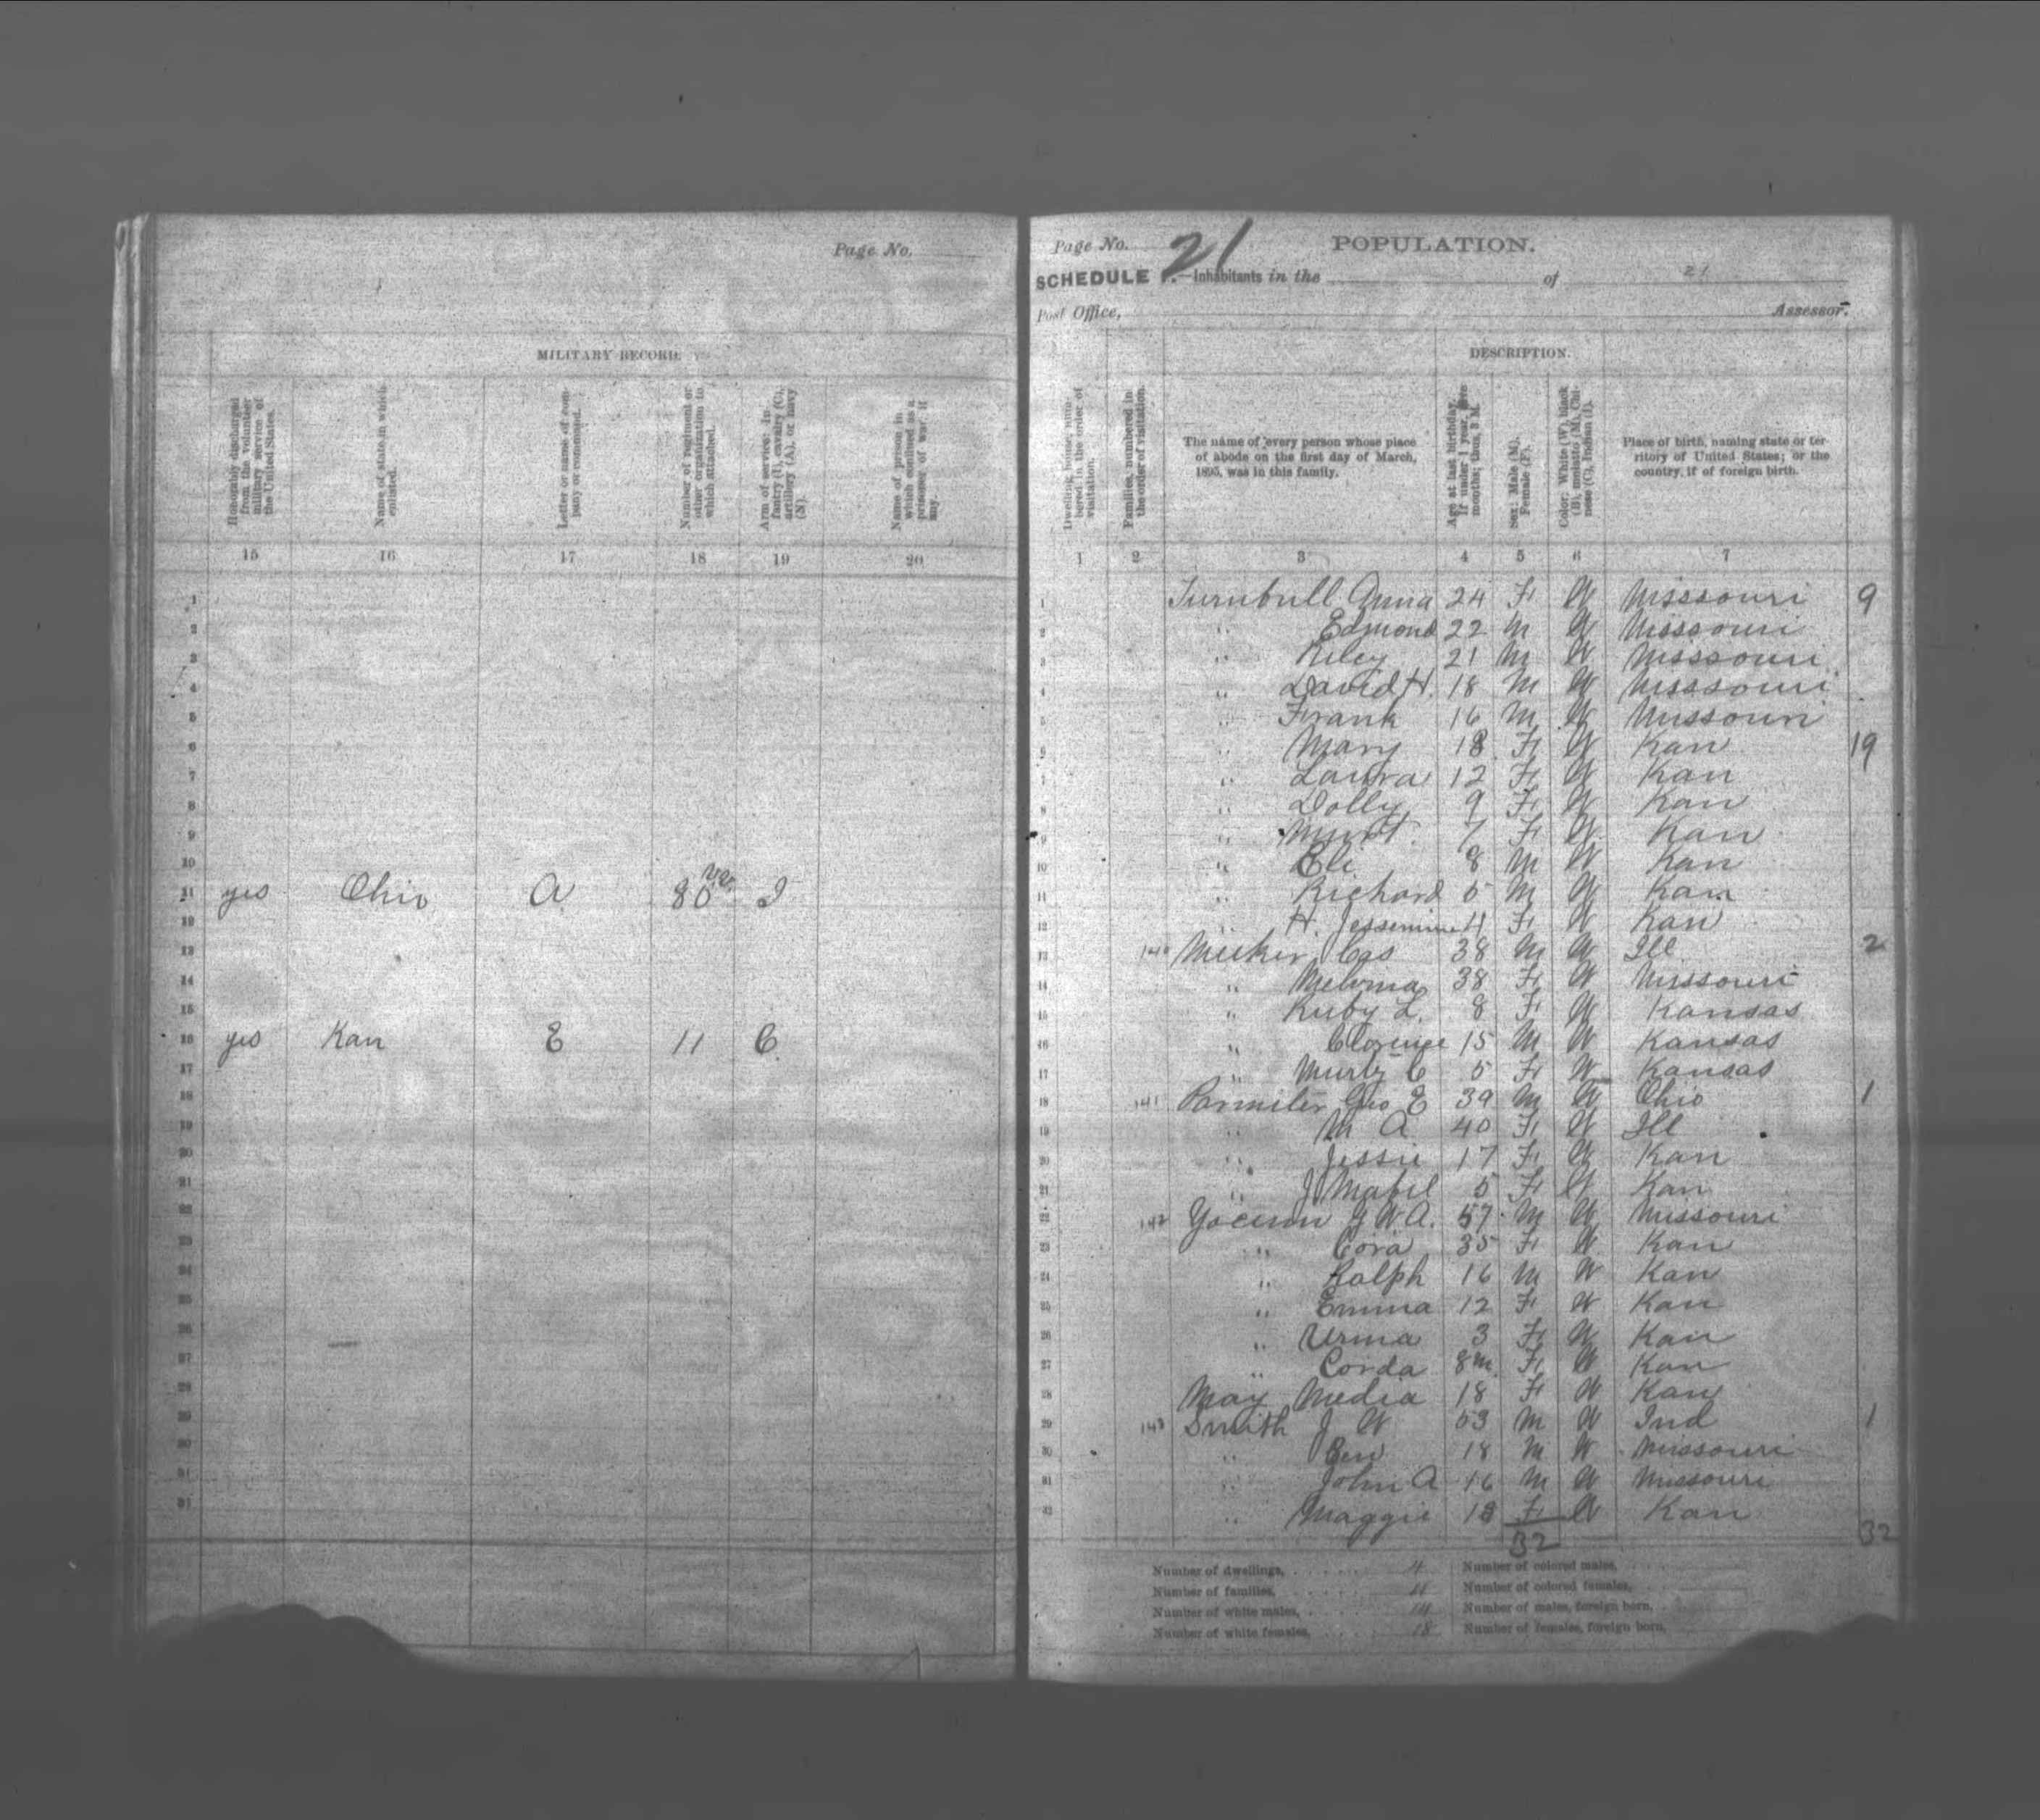 Page No.
MILITARY RECORD
Honorably discharged from the volunteer military service of the United States.
Name of state in which enlisted.
Letter or name of company or command.
Number of regiment or other organization to which attached.
Arm of service: Infantry (I), cavalry (C), artillery (A), or navy (N).
Name of prison in which confined as a prisoner of war, if any.
15 16 17 18 19 20
1
2
3
4
5
6
7
8
9
10
11 yes Ohio A 80 I
12
13
14
15
16 yes Kan E 11 C
17
18
19
20
21
22
23
24
25
26
27
28
29
30
31
Page No. 21 POPULATION.
SCHEDULE 1.—Inhabitants in the of 21
Post Office, Assessor.
DESCRIPTION.
Dwelling house, numbered in the order of visitation.
Families, numbered in the order of visitation.
The name of every person whose place of abode on the first day of March, 1895, was in this family.
Age at last birthday. If under 1 year, give months; thus, 3 M.
Sex: Male (M), Female (F).
Color: White (W), black (B), mulatto (M), Chinese (C), Indian (I).
Place of birth, naming state or territory of United States; or the country, if of foreign birth.
1 2 3 4 5 6 7
1 Turnbull Anna 24 F W Missouri 9
2 " Edmond 22 M W Missouri
3 " Riley 21 M W Missouri
4 " David H. 18 M W Missouri
5 " Frank 16 M W Missouri
6 " Mary 18 F W Kan 19
7 " Laura 12 F W Kan
8 " Dolly 9 F W Kan
9 " 7 F W Kan
10 " Eli 8 M W Kan
11 " Richard 5 M W Kan
12 " H. Jessemine 4 F W Kan
13 140 Meeker Cas 38 M W Ill 2
14 " Melvina 38 F W Missouri
15 " Ruby L. 8 F W Kansas
16 " Clarence 15 M W Kansas
17 " C 5 F W Kansas
18 141 Parmiler Geo E 39 M W Ohio 1
19 " M A 40 F W Ill
20 " Jessie 17 F W Kan
21 " J Mabel 5 F W Kan
22 142 Yocum J W A. 57 M W Missouri
23 " Cora 35 F W Kan
24 " Ralph 16 M W Kan
25 " Emma 12 F W Kan
26 " Urma 3 F W Kan
27 " Corda 8m F W Kan
28 May Media 18 F W Kan
29 143 Smith J W 53 M W Ind 1
30 " Ben 18 M W Missouri
31 " John A 16 M W Missouri
32 " Maggie 18 F W Kan
32 32
Number of dwellings, 4 Number of colored males,
Number of families, 4 Number of colored females,
Number of white males, 14 Number of males, foreign born,
Number of white females, 18 Number of females, foreign born,